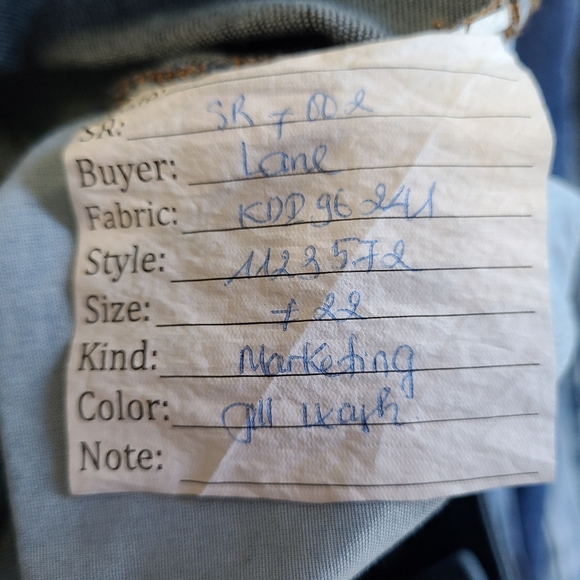 SR: SR 7002
Buyer: Lane
Fabric: KDD 96 241
Style: 1123572
Size: 22
Kind: Marketing
Color: All wash
Note: